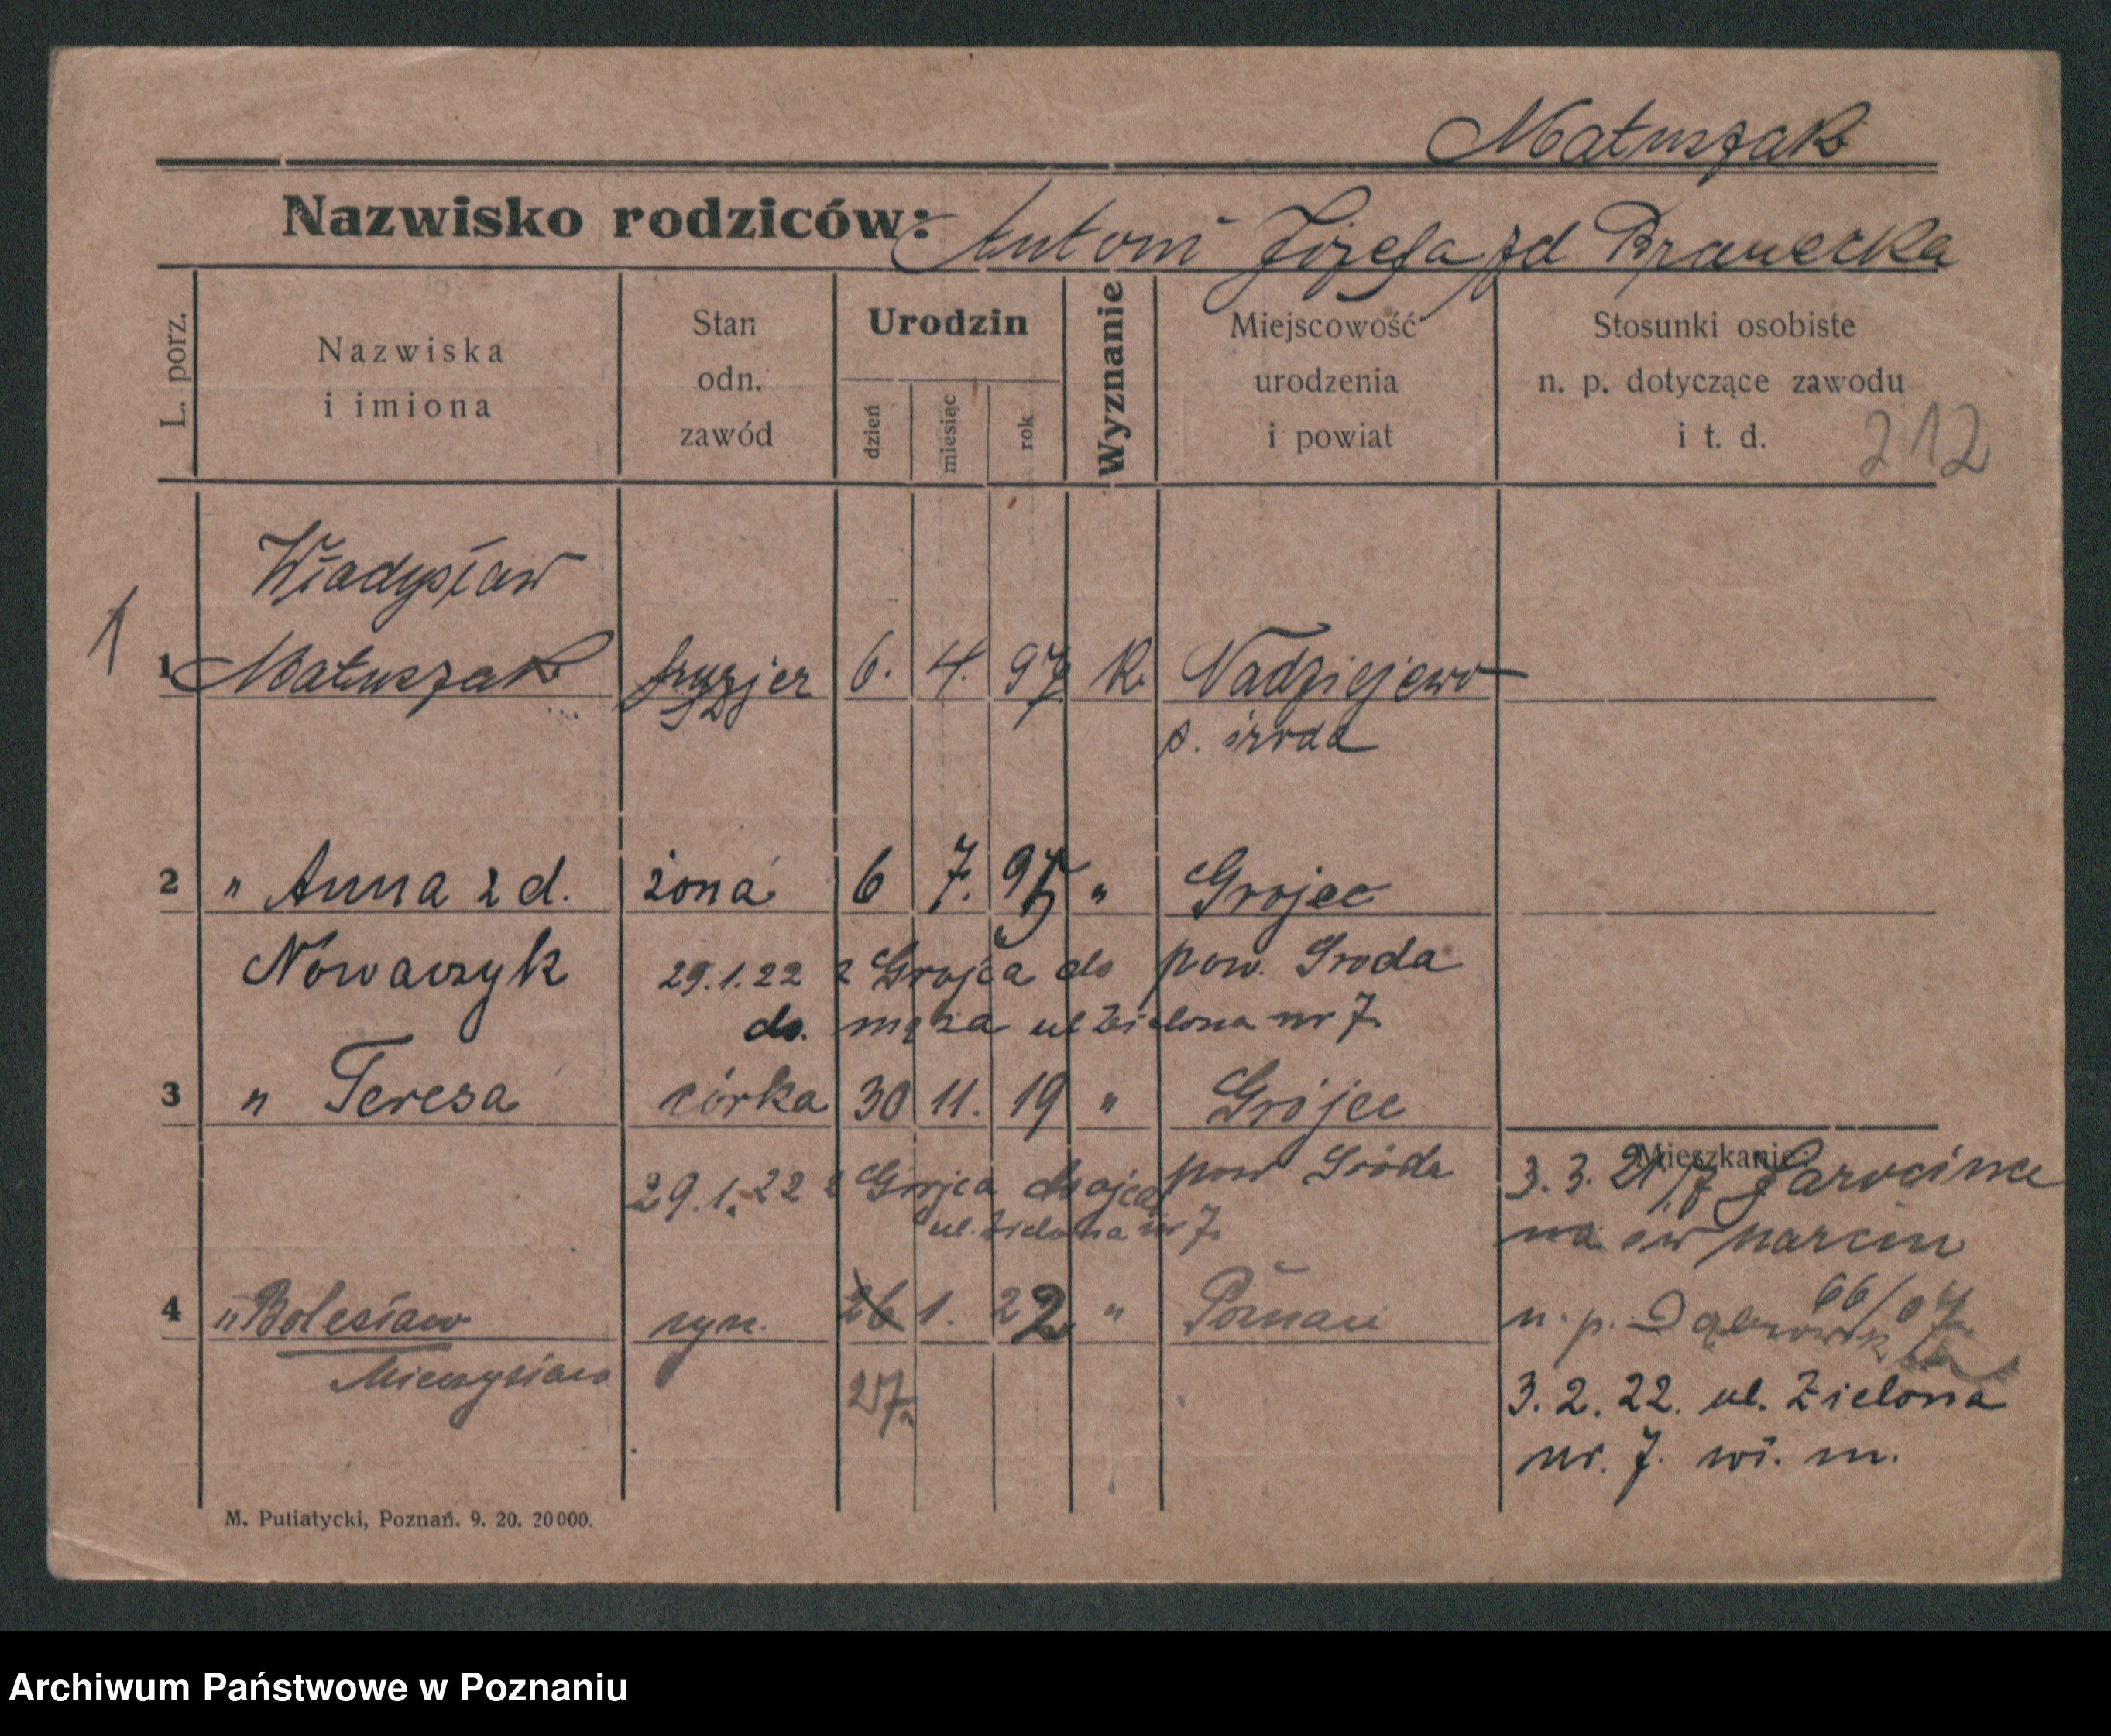 Matuszak
Nazwisko rodziców: Antoni Józefa zd
L. porz.
Nazwiska i imiona
Stan odn. zawód
Urodzin
dzień
miesiąc
rok
Wyznanie
Miejscowość urodzenia i powiat
Stosunki osobiste n. p. dotyczące zawodu i t. d.
212
Władysław
1
1 Matuszak fryzjer 6. 4. 97 K. Nadziejewo
p. środa
2 " Anna z d. żona 6 7. 95 " Grojec
Nowaczyk 29.1.22 z Grojca do pow. Środa
do. męża ul Zielona nr 7.
3 " Teresa córka 30 11. 19 " Grójec
Mieszkanie:
29.1.22 z Grojca do ojca pow Środa 3.3.21 z Jarocina
ul. Zielona nr 7. na św marcin
66/67
4 " Bolesław syn. 26 1. 22 " Poznań n. p.
Mieczysław 27. 3.2.22. ul. Zielona
nr. 7. wł. m.
M. Putiatycki, Poznań. 9. 20. 20000.
Archiwum Państwowe w Poznaniu